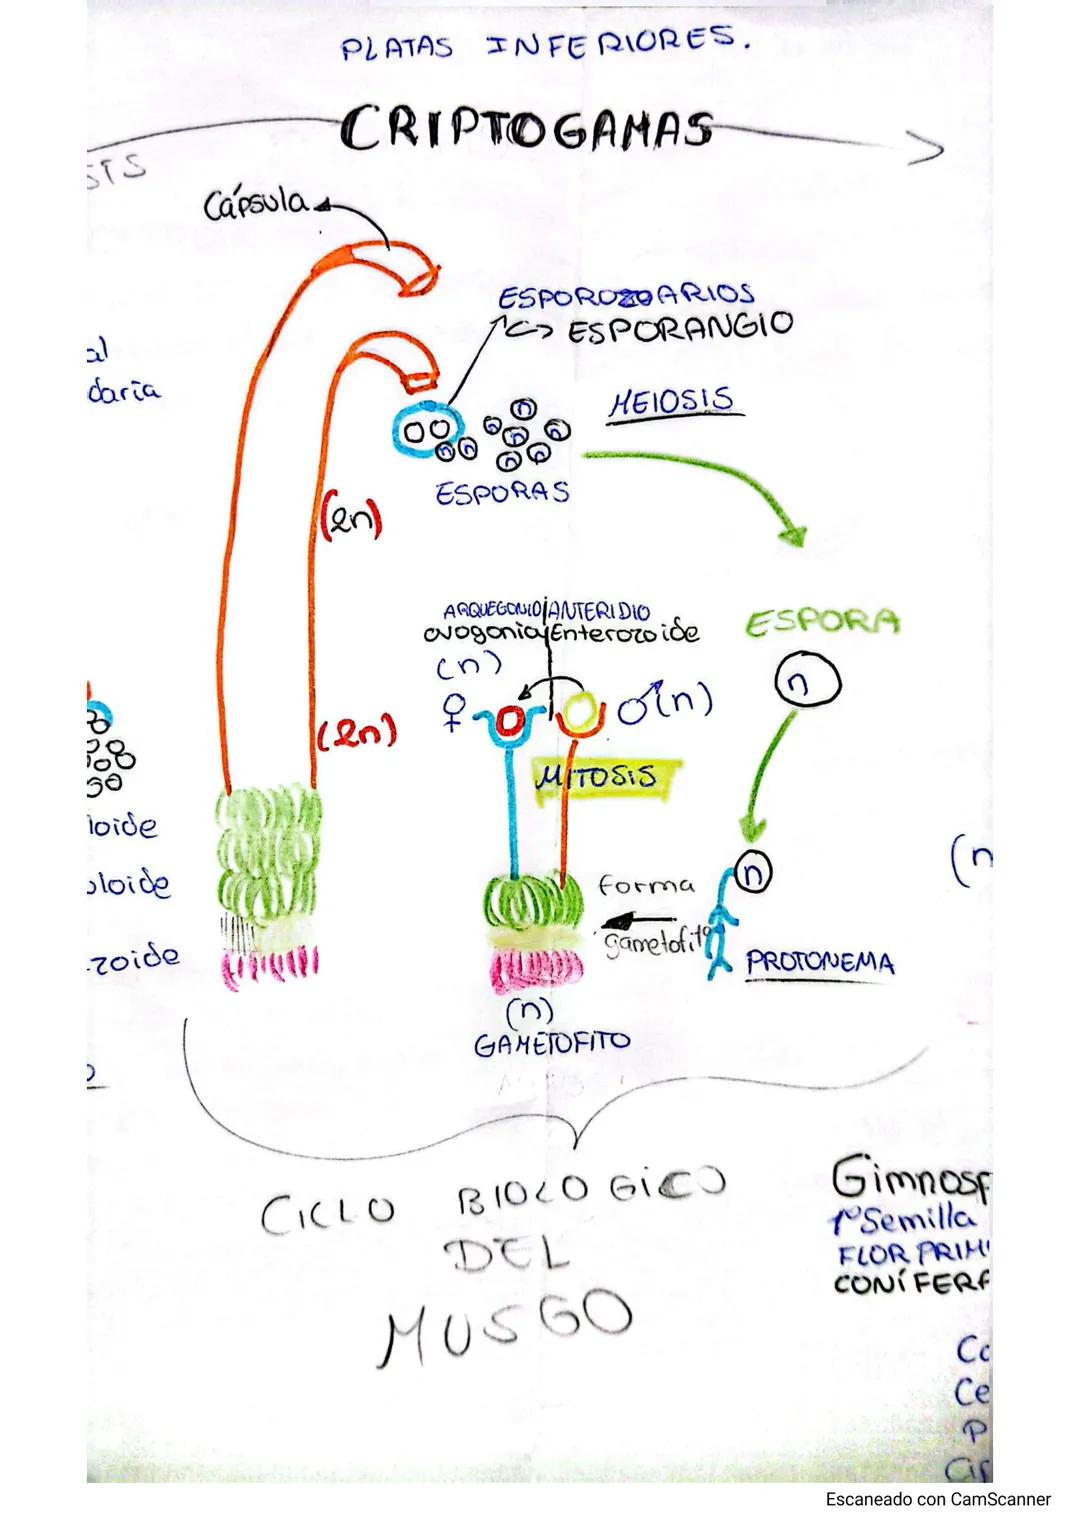 PLATAS INFERIORES.
CRIPTOGAMAS
SIS
Cápsula
ESPOROZOARIOS
ESPORANGIO
al
daria
MEIOSIS
n n n n n n n n n
ESPORAS
(2n)
ARQUEGONIO ANTERIDIO
ovogonia y Enterozoide
ESPORA
(n)
n
♀
♂(n)
(2n)
MITOSIS
loide
(n
ploide
forma
n
gametofito
zoide
PROTONEMA
(n)
GAMETOFITO
CICLO BIOLOGICO
DEL
MUSGO
Gimnosp
1º Semilla
FLOR PRIMI
CONÍFERA
Co
Ce
P
Cip
Escaneado con CamScanner